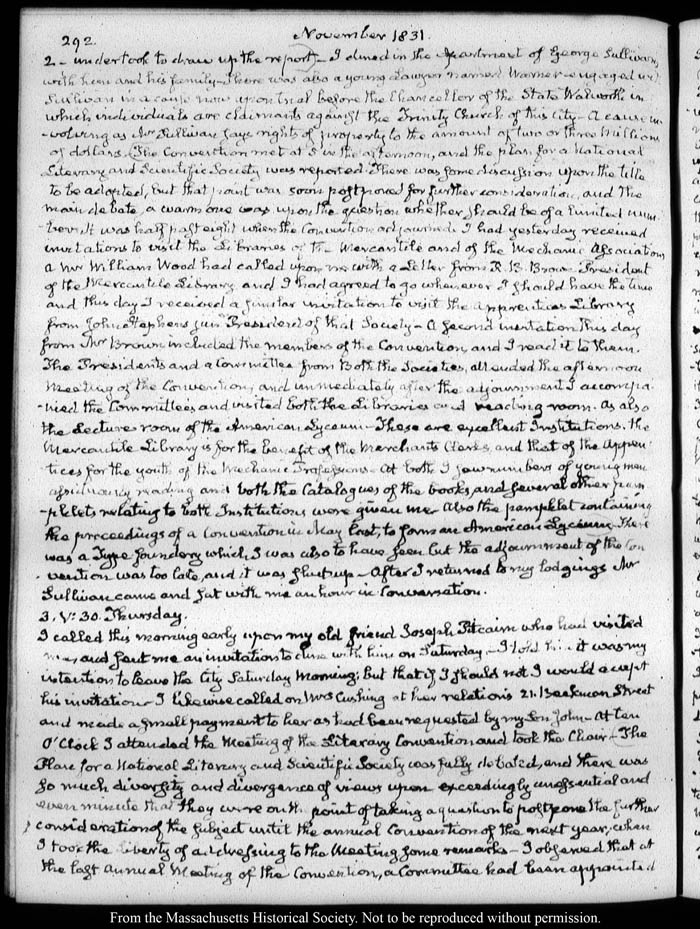 292.
November 1831.
2 - undertook to draw up the report - I dined in the apartment of George Sullivan,
with him and his family - There was also a young Lawyer named Warner - engaged with
Sullivan in a cause now upon trial before the Chancellor of the State Walworth, in
which individuals are claimants against the Trinity Church of this City - A cause in-
-volving as Mr Sullivan says rights of property to the amount of two or three Millions
of dollars. The Convention met at 5 in the afternoon, and the plan for a National
Literary and Scientific Society was reported. There was some discussion upon the title
to be adopted, but that point was soon postponed for further consideration, and the
main debate, a warm one was upon the question whether should be of a limited num-
ber. It was half past eight when the Convention adjourned. I had yesterday received
invitations to visit the Libraries of the Mercantile and of the Mechanic Associations
a Mr William Wood had called upon me with a Letter from R. B. Brown President
of the Mercantile Library and I had agreed to go whenever I should have the time
and this day I received a similar invitation to visit the Apprentices Library
from John Stephens junr President of that Society - A second invitation this day
from Mr Brown included the members of the Convention, and I read it to them.
The Presidents and a Committee from Both the Societies, attended the afternoon
Meeting of the Convention, and immediately after the adjournment I accompa-
-nied the Committees and visited both the Libraries and reading room. As also
the Lecture room of the American Lyceum - These are excellent Institutions. The
Mercantile Library is for the benefit of the Merchants Clerks, and that of the Appren-
tices for the youth of the Mechanic Professions - At both I saw numbers of young men
assiduously reading and both the Catalogues of the books, and several other pam-
-phlets relating to both Institutions were given me. Also the pamphlet containing
the proceedings of a Convention in May last, to form an American Lyceum. There
was a Type foundery which I was also to have seen but the adjournment of the Con-
-vention was too late, and it was shut up - After I returned to my lodgings Mr
Sullivan came and sat with me an hour in Conversation.
3. V: 30. Thursday.
I called this morning early upon my old friend Joseph Pitcairn who had visited
me, and sent me an invitation to dine with him on Saturday - I told him it was my
intention to leave the City Saturday Morning; But that if I should not I would accept
his invitation - I likewise called on Mrs Cushing at her relation's 21. Beekman Street
and made a small payment to her as had been requested by my Son John - At ten
O'Clock I attended the Meeting of the Literary Convention and took the Chair - The
Plan for a National Literary and Scientific Society was fully debated, and there was
so much diversity and divergence of views upon exceedingly unessential and
even minute that they were on the point of taking a question to postpone the further
consideration of the subject until the annual Convention of the next year; when
I took the liberty of addressing to the Meeting some remarks - I observed that at
the last annual Meeting of the Convention, a Committee had been appointed
From the Massachusetts Historical Society. Not to be reproduced without permission.